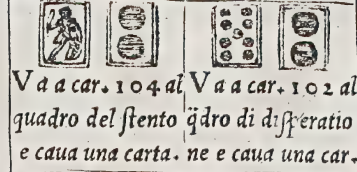 Va a car. 104 al
quadro del ſtento
e caua una carta.
Va a car. 102 al
q̃dro di diſperatio
ne e caua una car.